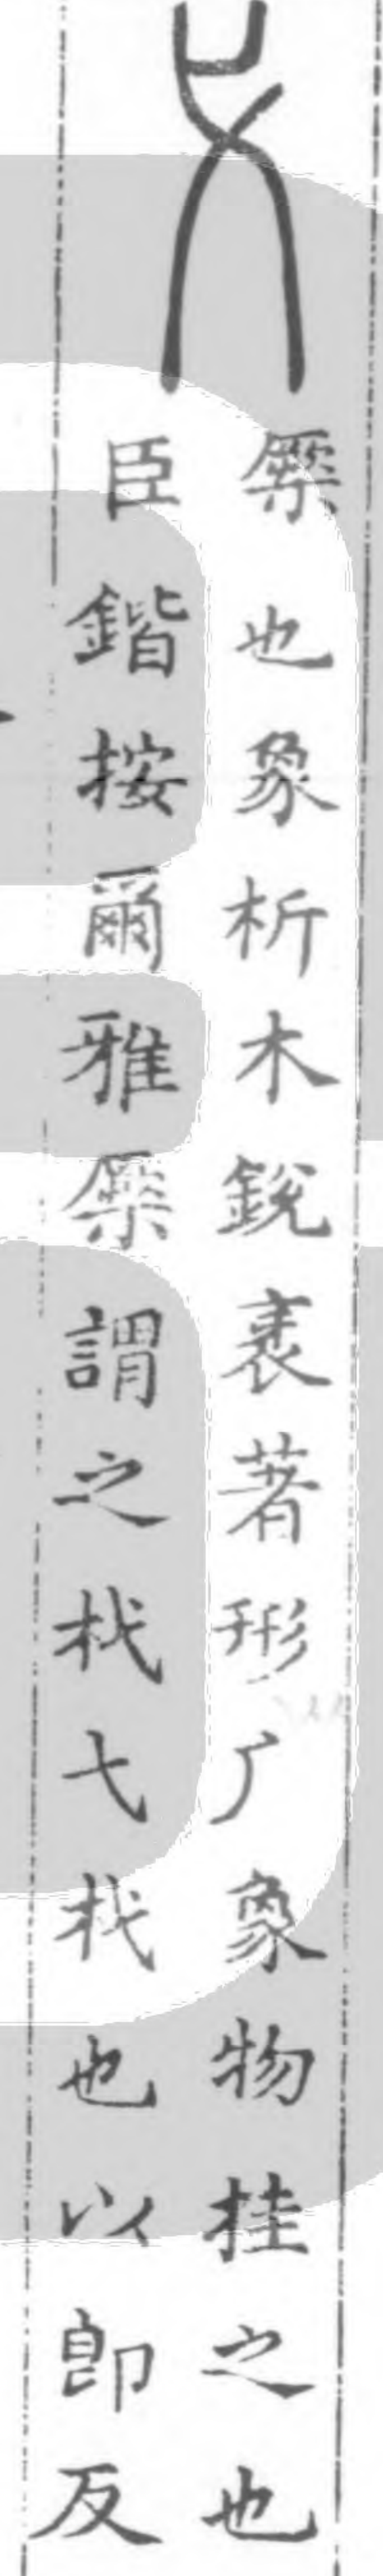 弋
橜也象析木銳衺著形𠂆象物挂之也
臣鍇按爾雅橜謂之杙弋杙也以即反